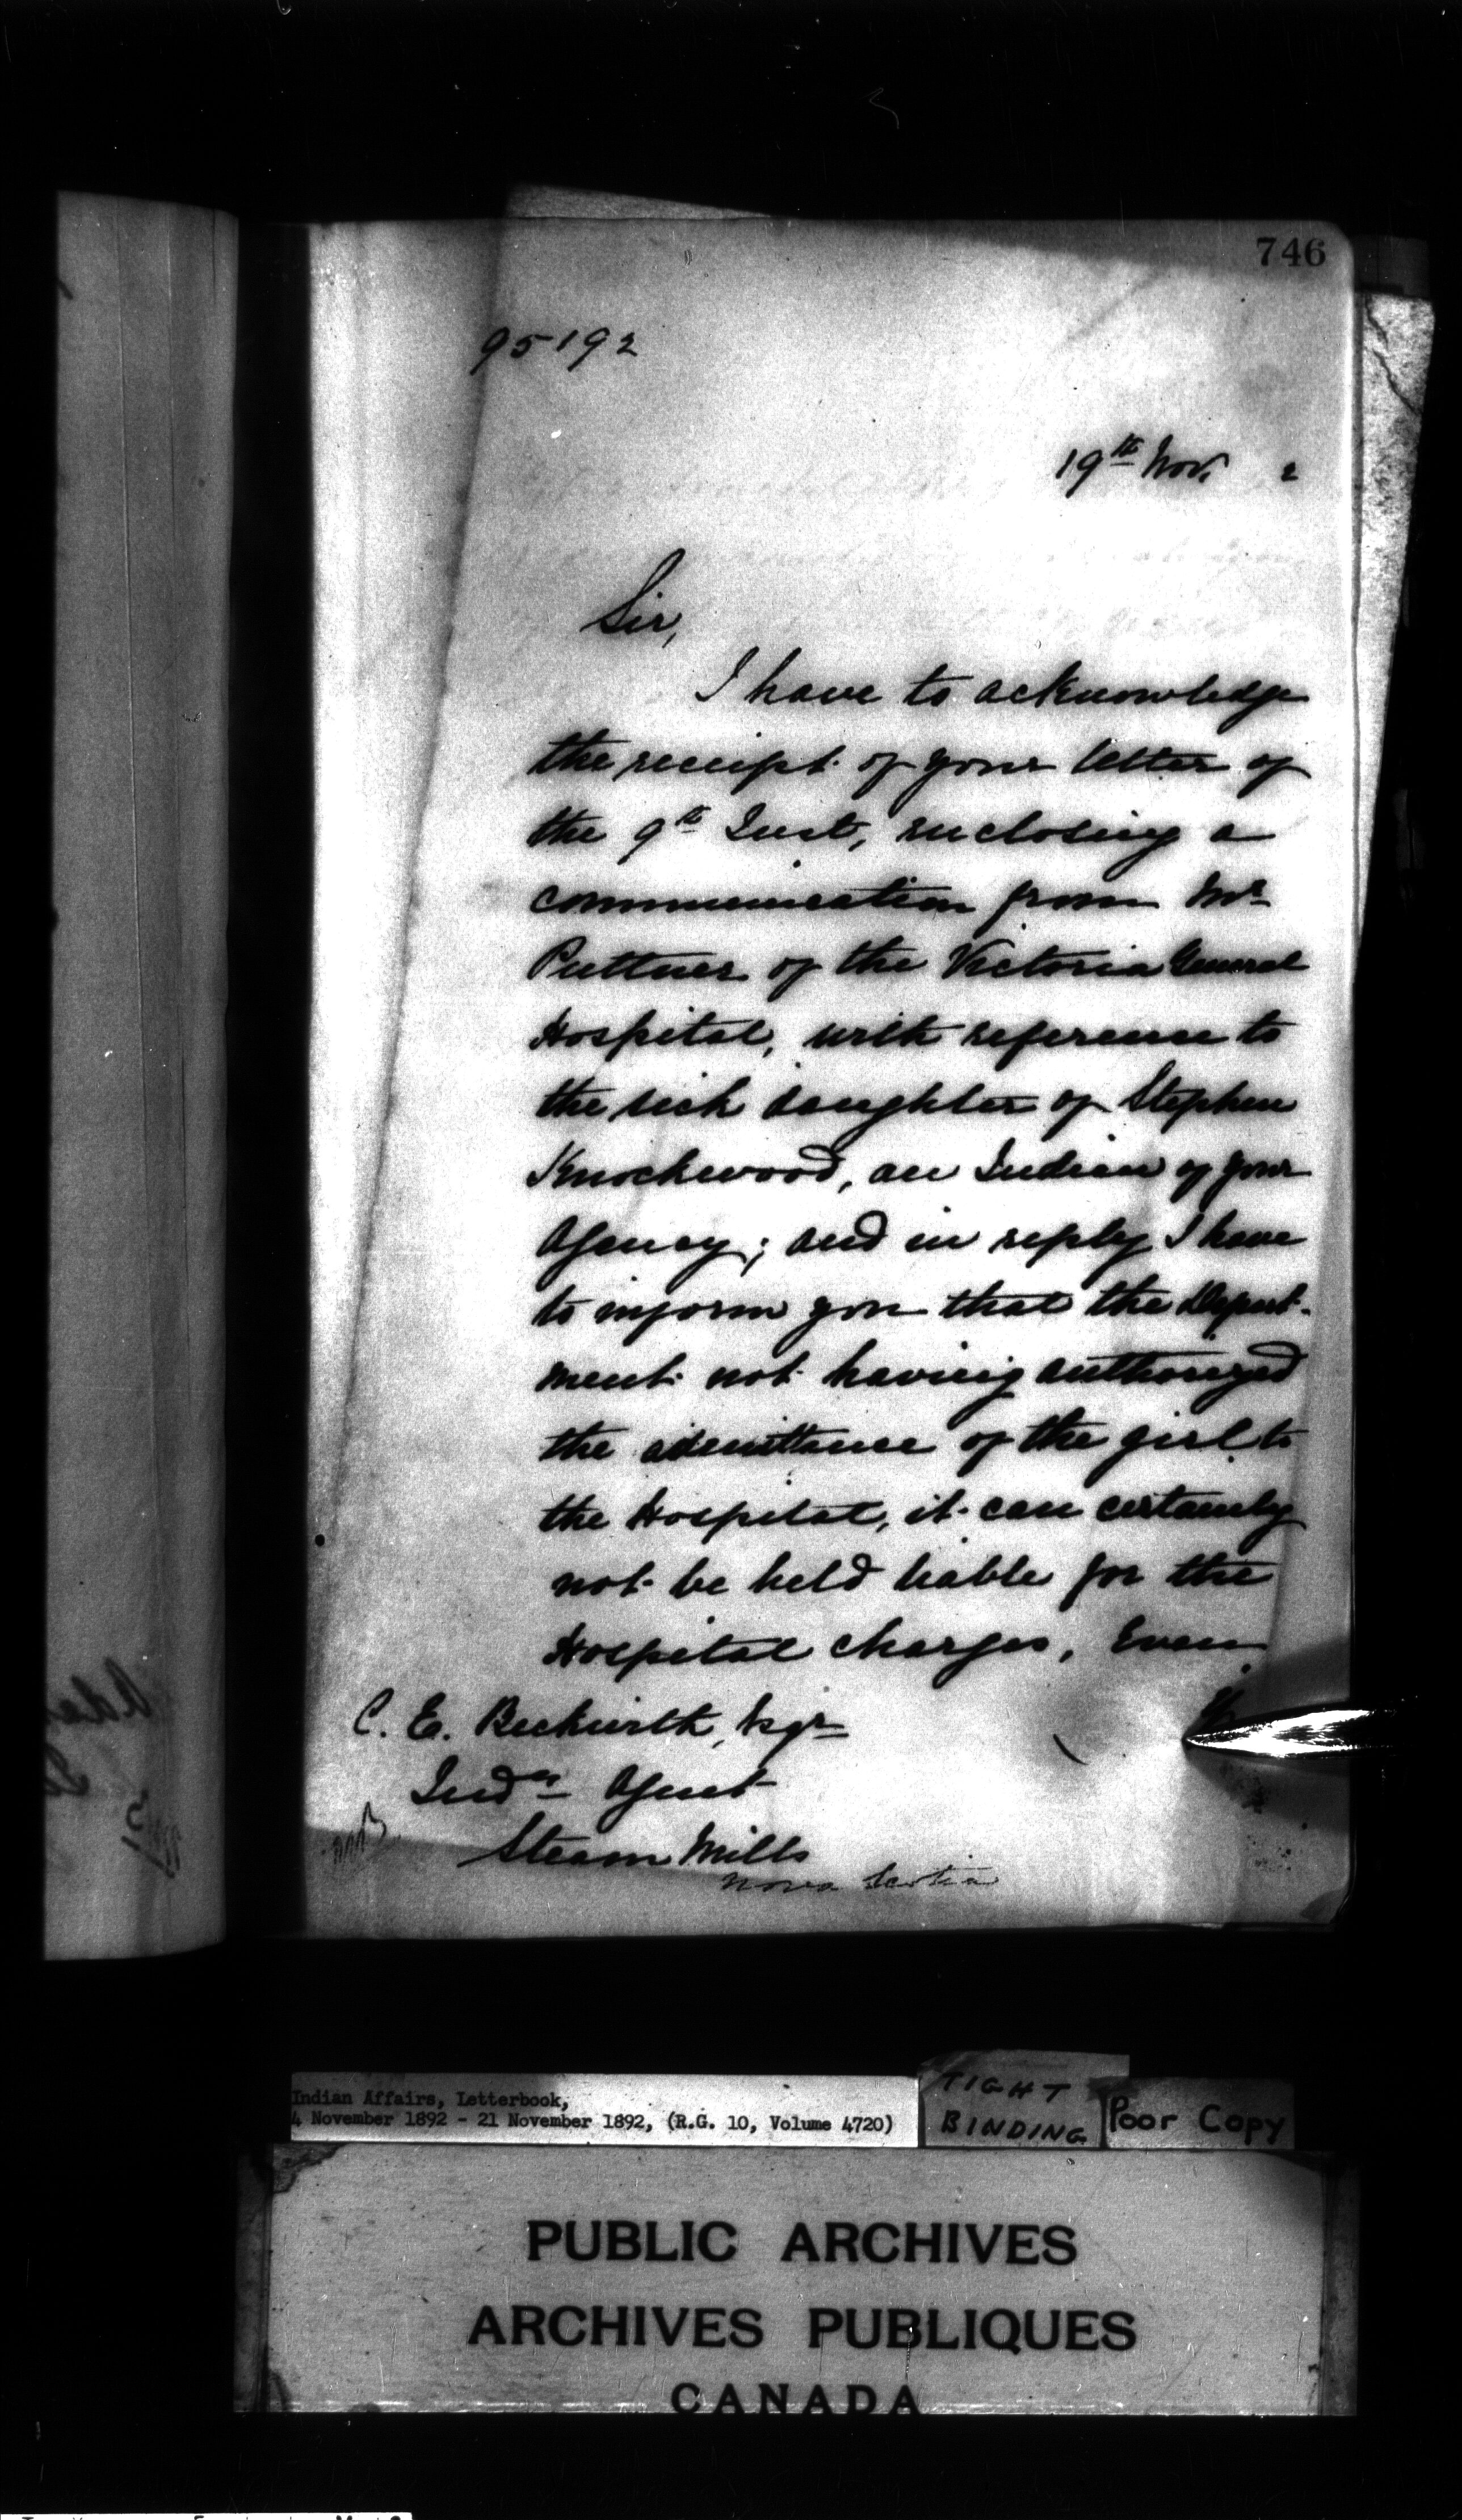 746
95192
19th Nov. 2
Sir,
I have to acknowledge
the receipt of your letter of
the 9th Inst, enclosing a
communication from Mr
Puttner of the Victoria General
Hospital, with reference to
the sick daughter of Stephen
Knockwood, an Indian of your
Agency; and in reply I have
to inform you that the Depart-
ment not having authorized
the admittance of the girl to
the Hospital, it can certainly
not be held liable for the
Hospital charges, Even
C. E. Beckwith, Esqr
Indn Agent
Steam Mills
Nova Scotia
Indian Affairs, Letterbook,
4 November 1892 - 21 November 1892, (R.G. 10, Volume 4720)
TIGHT
BINDING
Poor Copy
PUBLIC ARCHIVES
ARCHIVES PUBLIQUES
CANADA